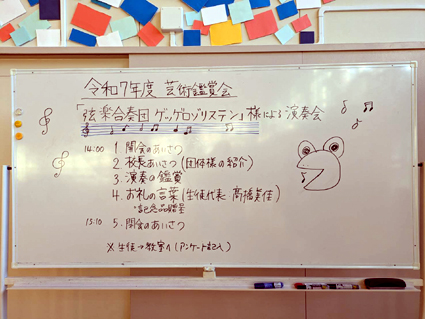 令和7年度 芸術鑑賞会
「弦楽合奏団 ゲッゲロゾリステン」様による演奏会
14:00 1. 開会のあいさつ
2. 校長あいさつ(団体様の紹介)
3. 演奏の鑑賞
4. お礼の言葉(生徒代表 髙橋
・記念品贈呈
15:10 5. 閉会のあいさつ
※生徒→教室へ(アンケート記入)